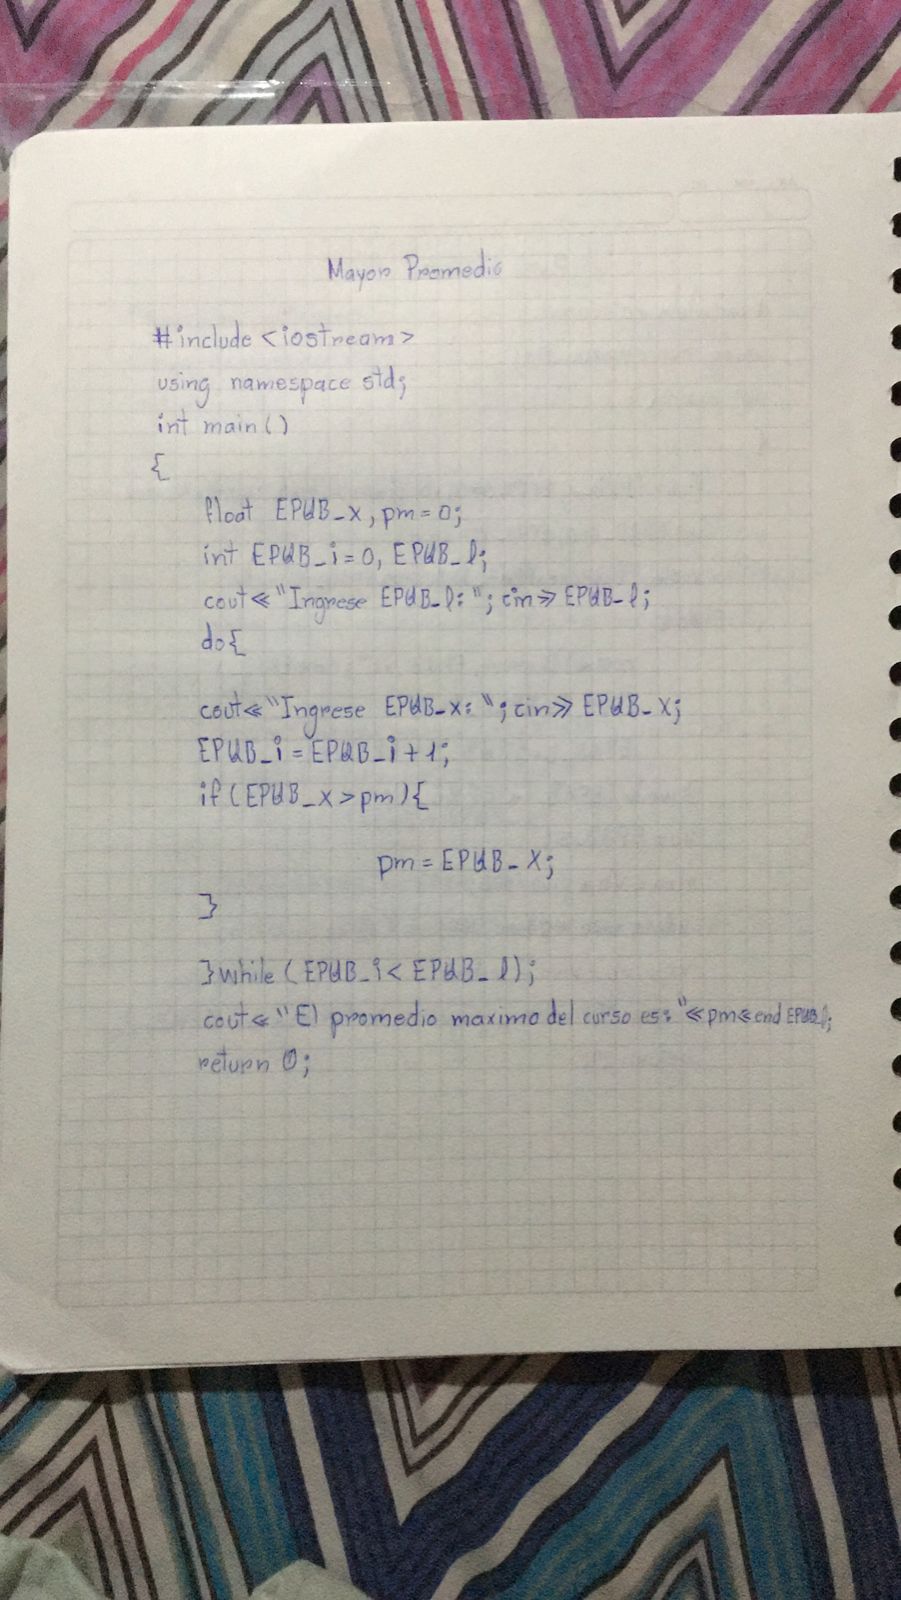 Mayor Promedio
#include <iostream>
using namespace std;
int main()
{
float EPWB_x, pm = 0;
int EPWB_i = 0, EPWB_l;
cout<<"Ingrese EPWB_l: "; cin>> EPWB_l;
do{
cout<<"Ingrese EPWB_x: "; cin>> EPWB_x;
EPWB_i = EPWB_i + 1;
if (EPWB_x > pm){
pm = EPWB_x;
}
}while (EPWB_i < EPWB_l);
cout<<"El promedio maximo del curso es: "<<pm<<endEPWB_l;
return 0;